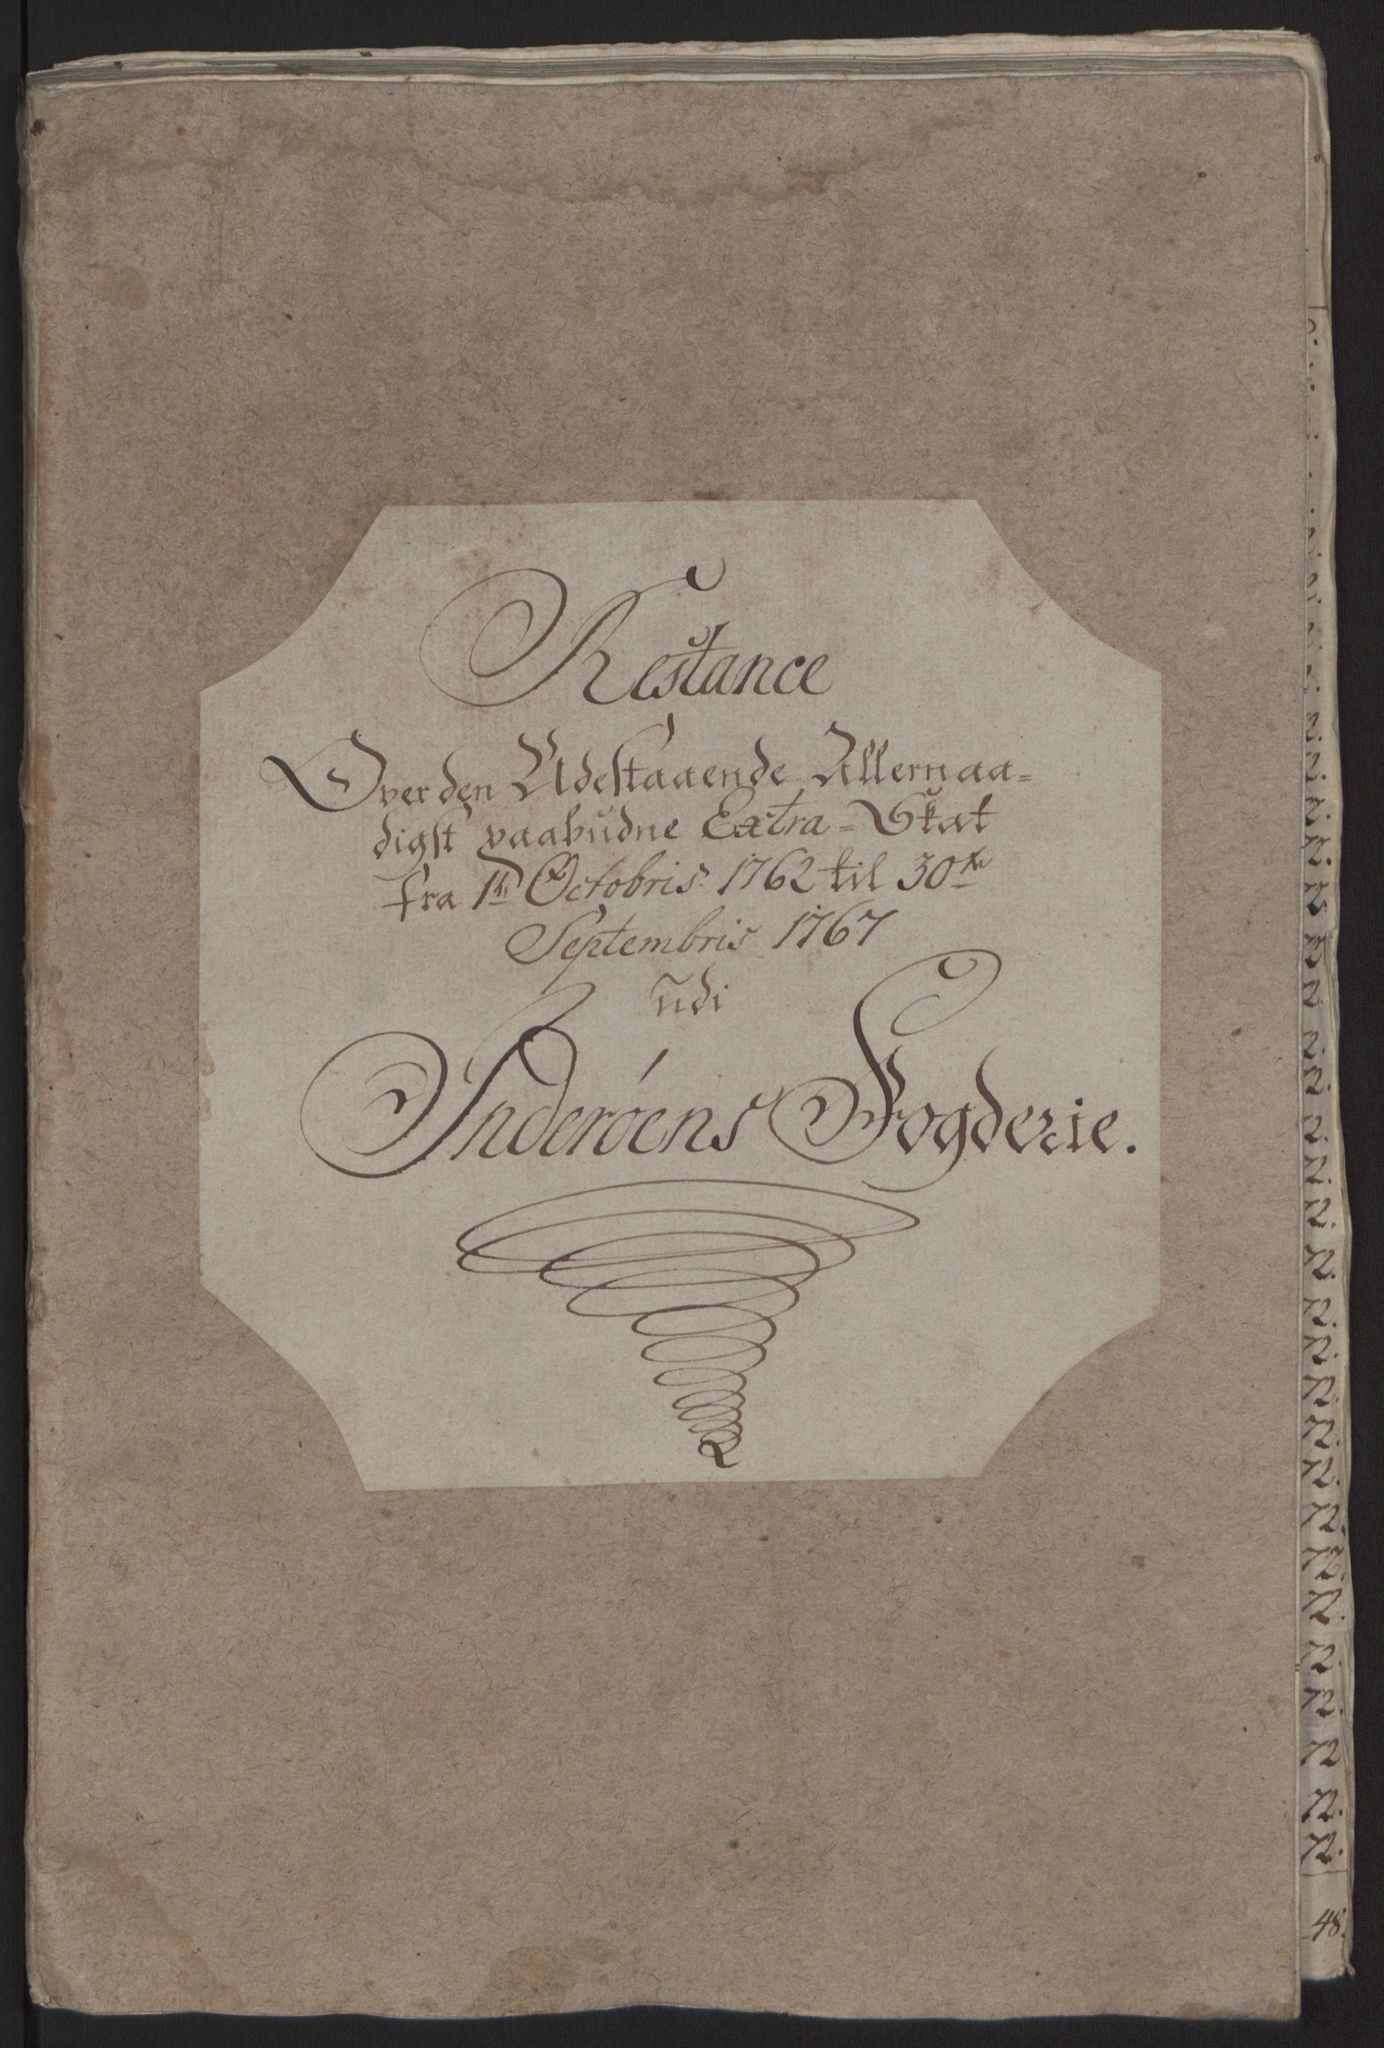 Restance
Over den Udestaaende Allernaa=
digst paabudne Extra=Skat
fra 1te Octobris 1762 til 30te
Septembris 1767
udi
Inderöens Fogderie.
48.